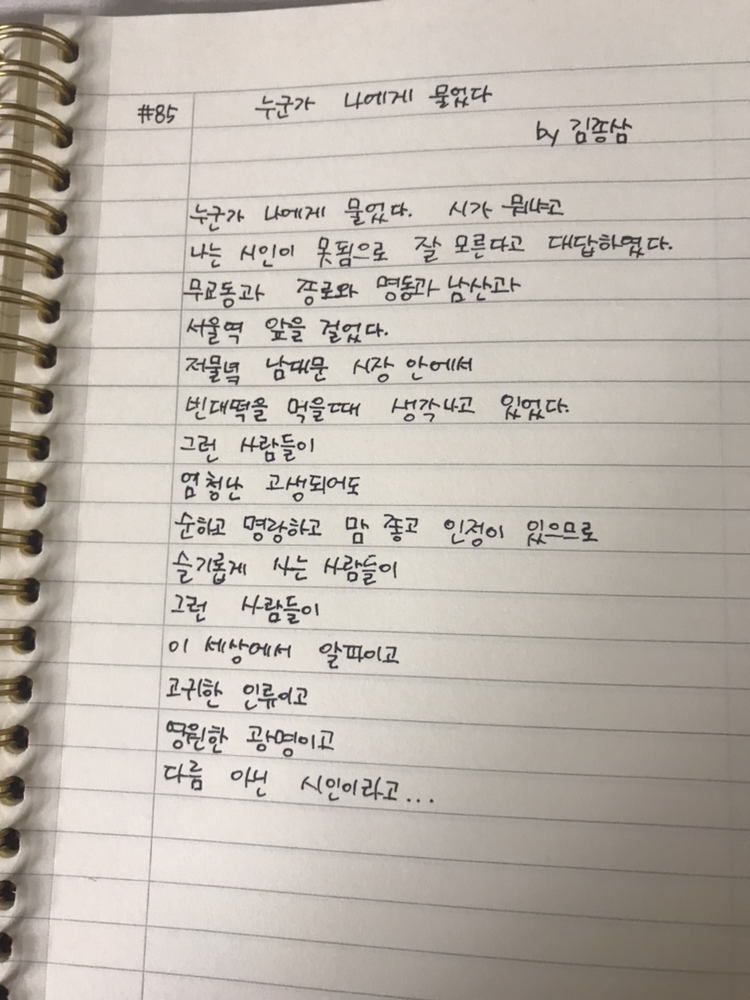 #85 누군가 나에게 물었다
by 김종삼
누군가 나에게 물었다. 시가 뭐냐고
나는 시인이 못됨으로 잘 모른다고 대답하였다.
무교동과 종로와 명동과 남산과
서울역 앞을 걸었다.
저물녘 남대문 시장 안에서
빈대떡을 먹을때 생각나고 있었다.
그런 사람들이
엄청난 고생되어도
순하고 명랑하고 맘 좋고 인정이 있으므로
슬기롭게 사는 사람들이
그런 사람들이
이 세상에서 알파이고
고귀한 인류이고
영원한 광명이고
다름 아닌 시인이라고...